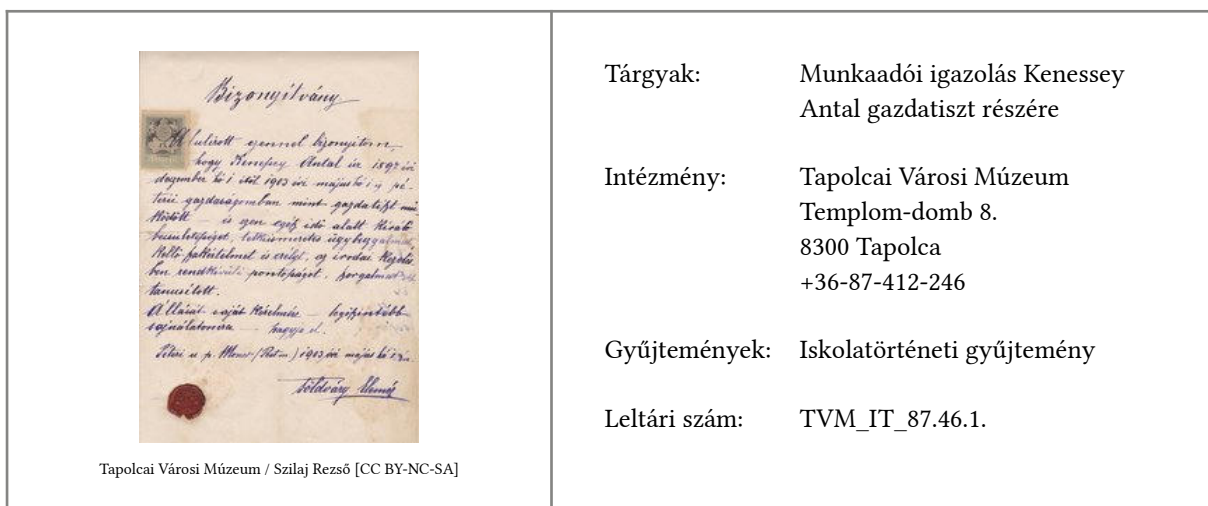 Bizonyítvány
Alulírott ezennel bizonyítom,
hogy Kenessey Antal úr 1897 évi
dezember hó 1 től 1903 évi május hó
gazdaságomban mint gazdatiszt mű-
ködött — is ezen egész idő alatt kiváló
becsületességet, lelkiismeretes
kellő szakértelmet is erélyt, az irodai kezelés-
ben rendkívüli pontosságot,
tanusított.
Állását saját kérelmére — legőszintébb
sajnálatomra — hagyja el.
Péteri u. p. Monor 1903 évi május hó
Földváry Elemér
Tapolcai Városi Múzeum / Szilaj Rezső [CC BY-NC-SA]
Tárgyak: Munkaadói igazolás Kenessey
Antal gazdatiszt részére
Intézmény: Tapolcai Városi Múzeum
Templom-domb 8.
8300 Tapolca
+36-87-412-246
Gyűjtemények: Iskolatörténeti gyűjtemény
Leltári szám: TVM_IT_87.46.1.